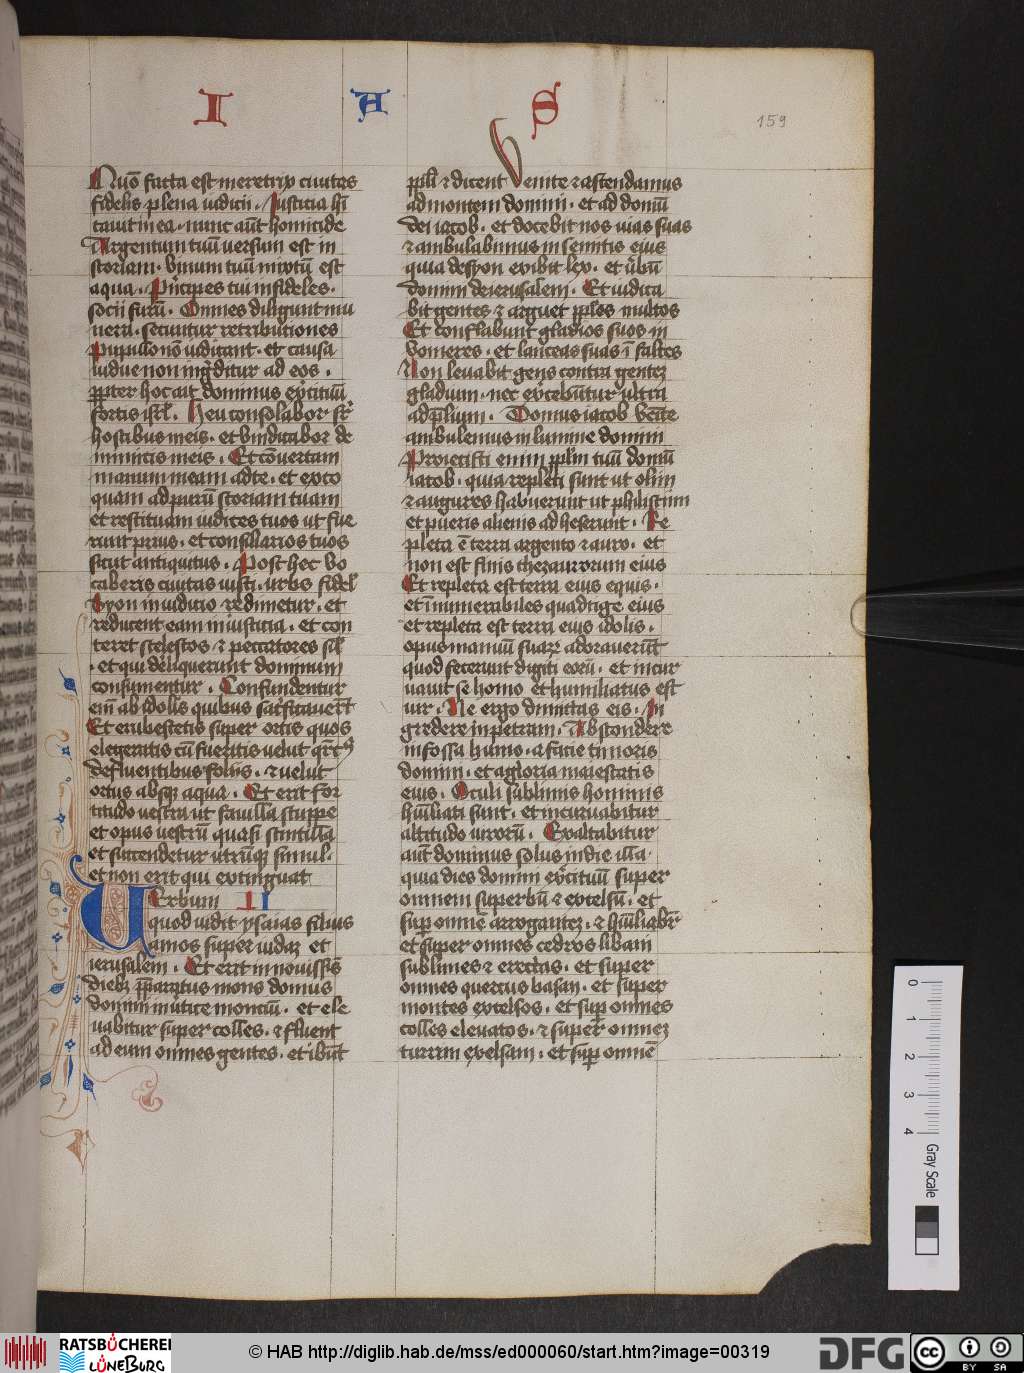 I A S
159
Quō facta est meretrix ciuitas
fidelis plena iudicii · Justicia hi
tauit in ea · nunc aūt homicide
Argentum tuū versum est in
scoriam · vinum tuū mixtū est
aqua · Pricipes tui infideles ·
socii furū · Omnes diligunt mu
nera · secuntur retributiones
Pupillo nō iudicant · et causa
uidue non ingditur ad eos ·
ppter hoc ait dominus exercituū
fortis isrl · Heu consolabor sr
hostibus meis · et vindicabor de
inimicis meis · Et cōuertam
manum meam ad te · et exco
quam ad purū scoriam tuam
et restituam iudices tuos ut fue
runt prius · et consiliarios tuos
sicut antiquitus · Post hec vo
caberis ciuitas iusti · urbs fidel
Syon in iudicio redimetur · et
reducent eam in iusticia · et con
teret scelestos · et peccatores sil
· et qui deliquerunt dominum
consumentur · Confundentur
eni ab idolis quibus sacficauert
Et erubescetis super ortis quos
elegeratis cū fueritis uelut qrc9
defluentibus foliis · et uelut
ortus absq aqua · Et erit for
titudo vestra ut fauilla stuppe
et opus vestrū quasi scintilla
et succendetur utrūq simul ·
et non erit qui extinguat
Uerbum II
quod uidit ysaias filius
amos super iudaz et
ierusalem · Et erit in nouissis
dieb pparatus mons domus
domini in utice montiū · et ele
uabitur super colles · et fluent
ad eum omnes gentes · et ibūt
ppli et dicent Venite et ascendamus
ad montem domini · et ad domū
dei iacob · et docebit nos uias suas
et ambulabimus in semitis eius
quia de syon exibit lex · et ubū
domini de ierusalem · Et iudica
bit gentes et arguet pplos multos
Et conflabunt gladios suos in
vomeres · et lanceas suas ī falces
Non leuabit gens contra gentez
gladium · nec exercebūtur ultra
ad plium · Domus iacob venite
ambulemus in lumine domini
Proiecisti enim pplm tuū domū
iacob · quia repleti sunt ut olim
et augures habuerunt ut philistiim
et pueris alienis adheserunt · Re
pleta ē terra argento et auro · et
non est finis thezaurorum eius
Et repleta est terra eius equis ·
et innumerabiles quadrige eius
et repleta est terra eius idolis ·
opus manuū suarz adorauerūt
quod fecerunt digiti eorū · et incur
uauit se homo et humiliatus est
uir · Ne ergo dimittas eis · In
gredere in petram · Abscondere
in fossa humo · a facie timoris
domini · et a gloria maiestatis
eius · Oculi sublimis hominis
huliati sunt · et incuruabitur
altitudo uirorū · Exaltabitur
aut dominus solus in die illa ·
quia dies domini exercituū super
omnem superbū et excelsū · et
sup omnē arrogantez · et huliabr
et super omnes cedros libani
sublimes et erectas · et super
omnes quercus basan · et super
montes excelsos · et sup omnes
colles eleuatos · et super omnez
turrim exelsam · et sup omnē
0
1
2
3
4
Gray Scale
RATSBÜCHEREI
LÜNEBURG
© HAB http://diglib.hab.de/mss/ed000060/start.htm?image=00319
DFG
cc BY SA